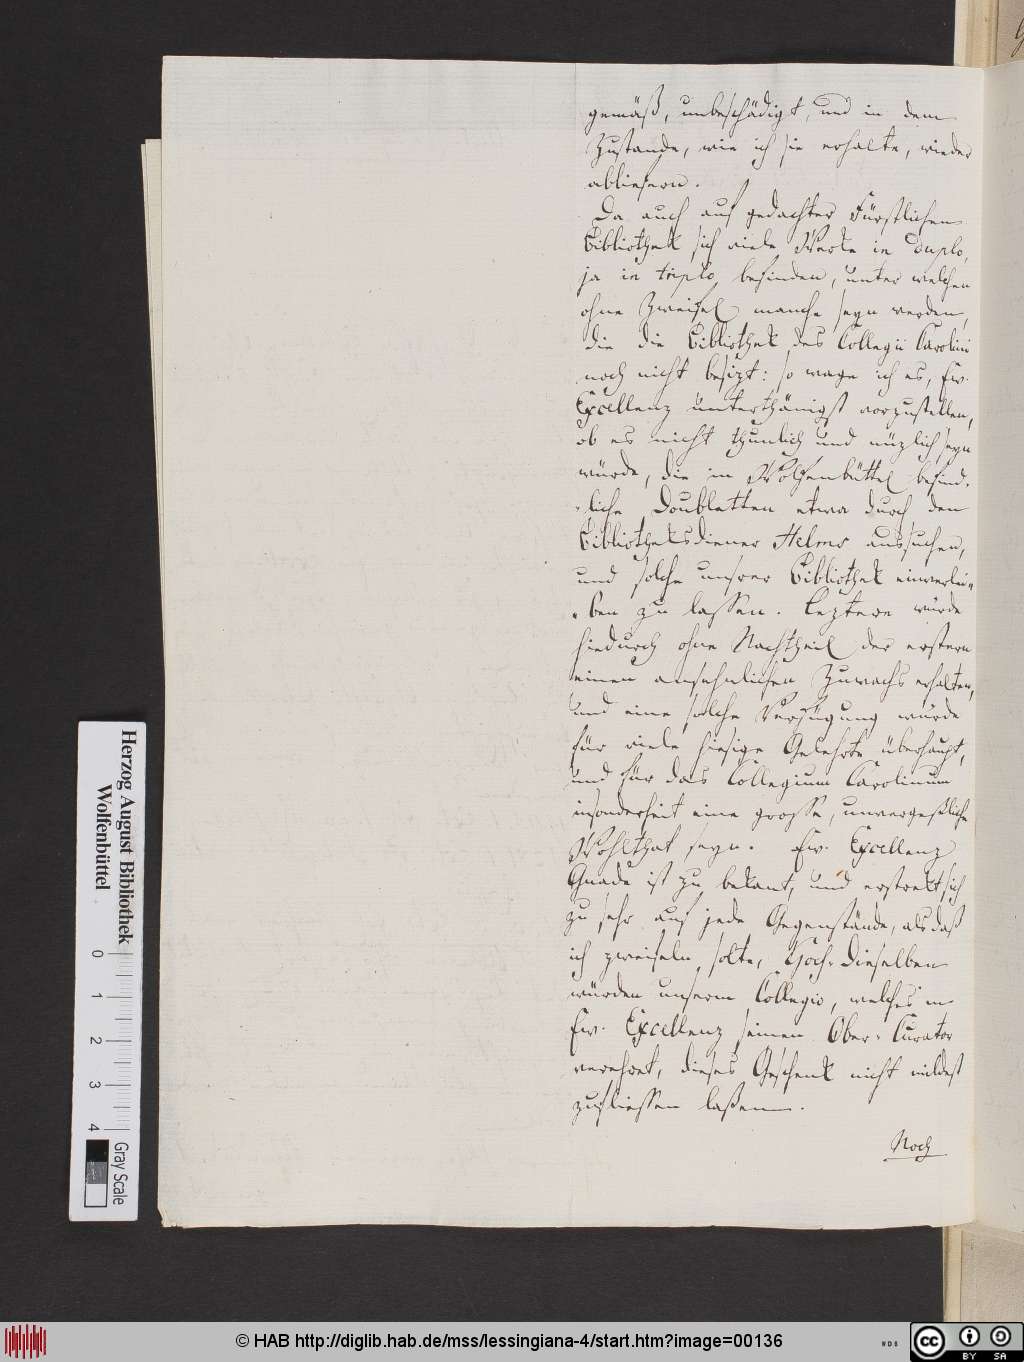 gemäß, unbeschädigt, und in dem
Zustande, wie ich sie erhalte, wieder
abliefern.
Da auch auf gedachter Fürstlichen
Bibliothek sich viele Werke in duplo,
ja in triplo befinden, unter welchen
ohne Zweifel manche seyn werden,
die die Bibliothek des Collegii Carolini
noch nicht besizt: so wage ich es, Ew.
Excellenz unterthänigst vorzustellen,
ob es nicht thunlich und nüzlich seyn
würde, die in Wolfenbüttel befind-
-liche Doubletten etwa durch den
Bibliotheksdiener Helms aussuchen,
und solche unsrer Bibliothek einverlei-
-ben zu lassen. Leztere würde
hiedurch ohne Nachtheil der erstern
einen ansehnlichen Zuwachs erhalten,
und eine solche Verfügung würde
für viele hiesige Gelehrte überhaupt,
und für das Collegium Carolinum
insonderheit eine grosse, unvergeßliche
Wohlthat seyn. Ew. Excellenz
Gnade ist zu bekant, und erstrekt sich
zu sehr auf jede Gegenstände, als daß
ich zweifeln solte, Hoch-Dieselben
würden unserm Collegio, welches in
Ew. Excellenz seinen Ober-Curator
verehret, dieses Geschenk nicht mildest
zufliessen laßen.
Noch
Herzog August Bibliothek
Wolfenbüttel
0 1 2 3 4
Gray Scale
© HAB http://diglib.hab.de/mss/lessingiana-4/start.htm?image=00136
WDB
cc BY SA